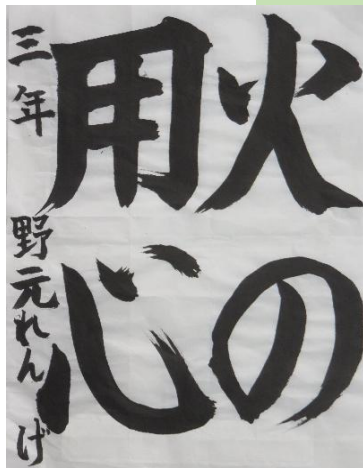 火の
用心
三年 野元れんげ